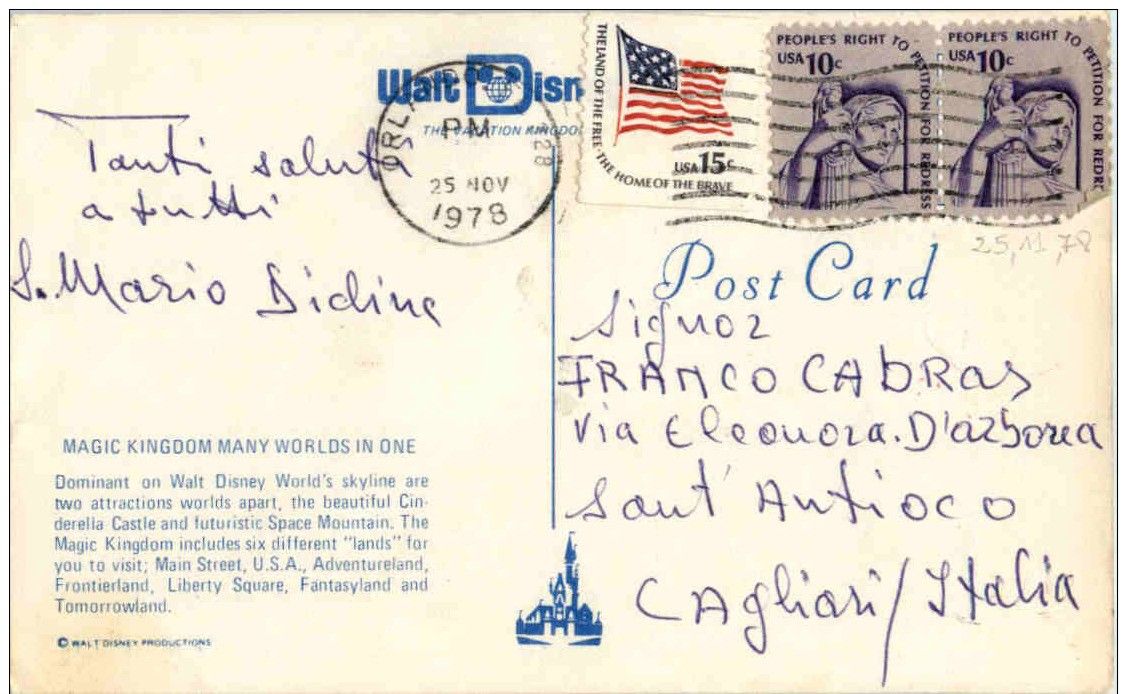 Walt Disn
THE VACATION KINGDO
ORLA
PM
328
25 NOV
1978
THE LAND OF THE FREE · THE HOME OF THE BRAVE
USA 15c
PEOPLE'S RIGHT TO PETITION FOR REDRESS
USA 10c
PEOPLE'S RIGHT TO PETITION FOR REDRE
USA 10c
25,11,78
Tanti saluti
a tutti
S. Mario Didina
Post Card
Signor
FRANCO CABRAS
Via Eleonora. D'arborea
Sant' Antioco
CAgliari/Italia
MAGIC KINGDOM MANY WORLDS IN ONE
Dominant on Walt Disney World's skyline are
two attractions worlds apart, the beautiful Cin-
derella Castle and futuristic Space Mountain. The
Magic Kingdom includes six different "lands" for
you to visit; Main Street, U.S.A., Adventureland,
Frontierland, Liberty Square, Fantasyland and
Tomorrowland.
© WALT DISNEY PRODUCTIONS